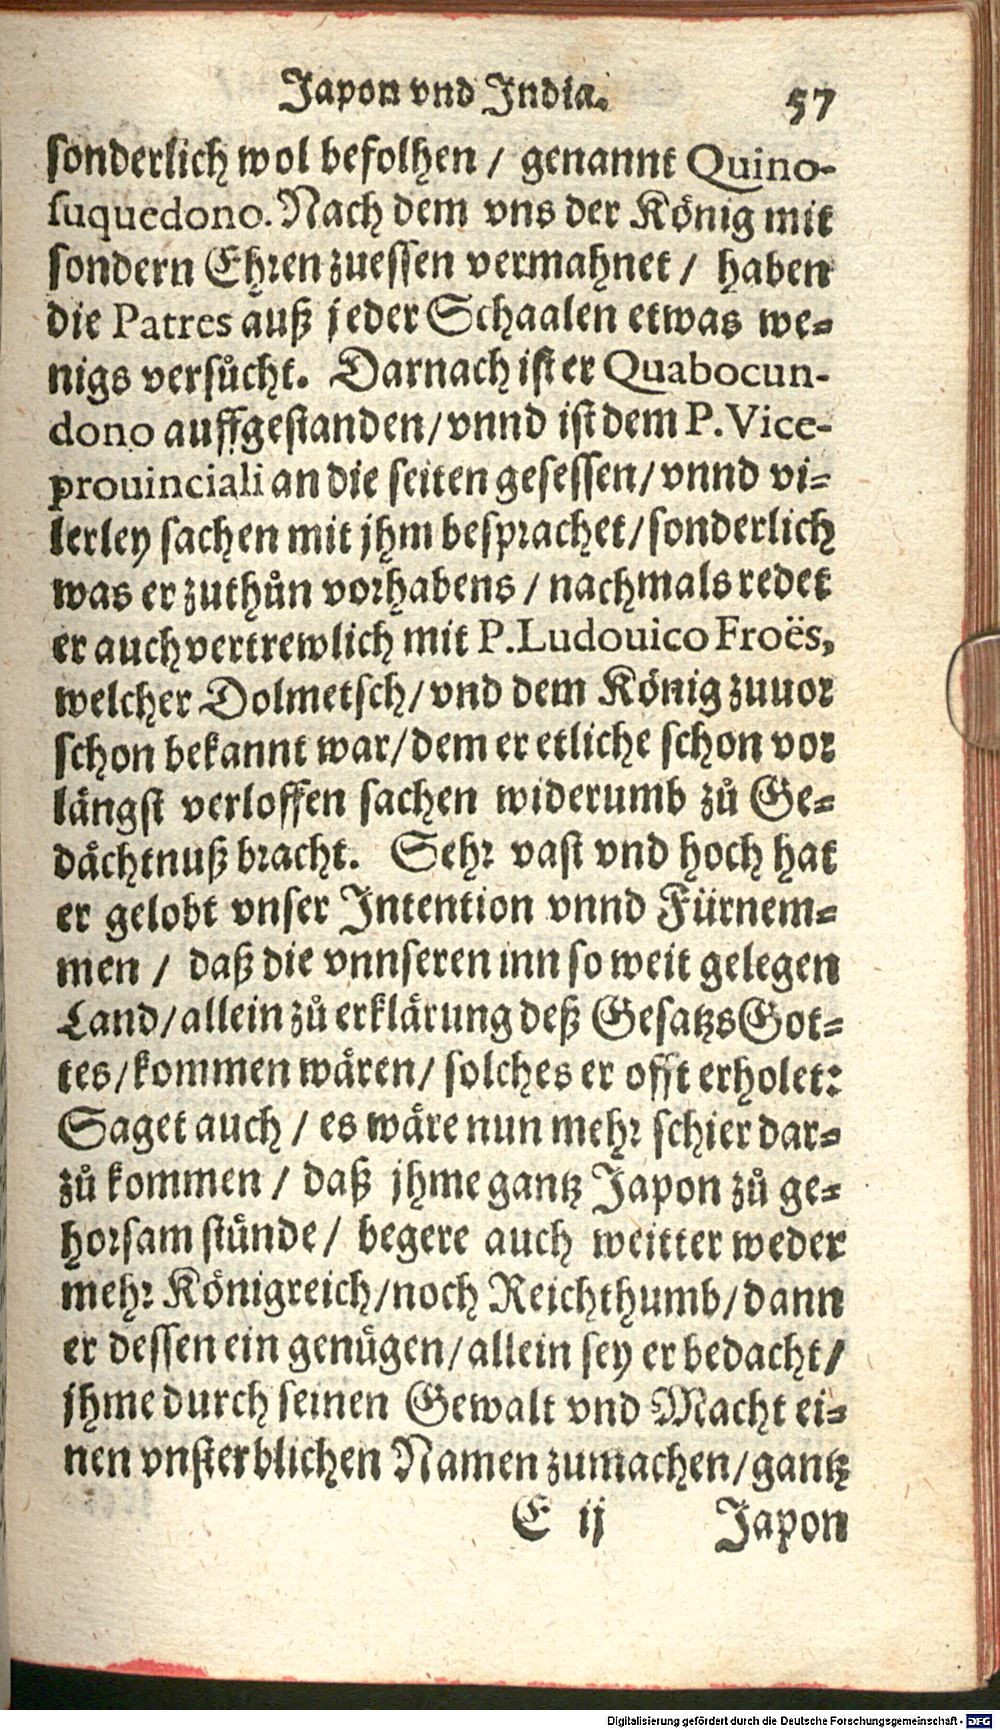 Japon vnd India. 57
sonderlich wol befolhen / genannt Quino-
suquedono. Nach dem vns der König mit
sondern Ehren zuessen vermahnet / haben
die Patres auß jeder Schaalen etwas we-
nigs versůcht. Darnach ist er Quabocun-
dono auffgestanden / vnnd ist dem P. Vice-
prouinciali an die seiten gesessen / vnnd vi-
lerley sachen mit jhm besprachet / sonderlich
was er zuthůn vorhabens / nachmals redet
er auch vertrewlich mit P. Ludouico Froës,
welcher Dolmetsch / vnd dem König zuuor
schon bekannt war / dem er etliche schon vor
längst verloffen sachen widerumb zů Ge-
dächtnuß bracht. Sehr vast vnd hoch hat
er gelobt vnser Intention vnnd Fürnem-
men / daß die vnnseren inn so weit gelegen
Land / allein zů erklärung deß Gesatzs Got-
tes / kommen wären / solches er offt erholet:
Saget auch / es wäre nun mehr schier dar-
zů kommen / daß jhme gantz Japon zů ge-
horsam stünde / begere auch weitter weder
mehr Königreich / noch Reichthumb / dann
er dessen ein genügen / allein sey er bedacht /
jhme durch seinen Gewalt vnd Macht ei-
nen vnsterblichen Namen zumachen / gantz
E ij Japon
Digitalisierung gefördert durch die Deutsche Forschungsgemeinschaft - DFG